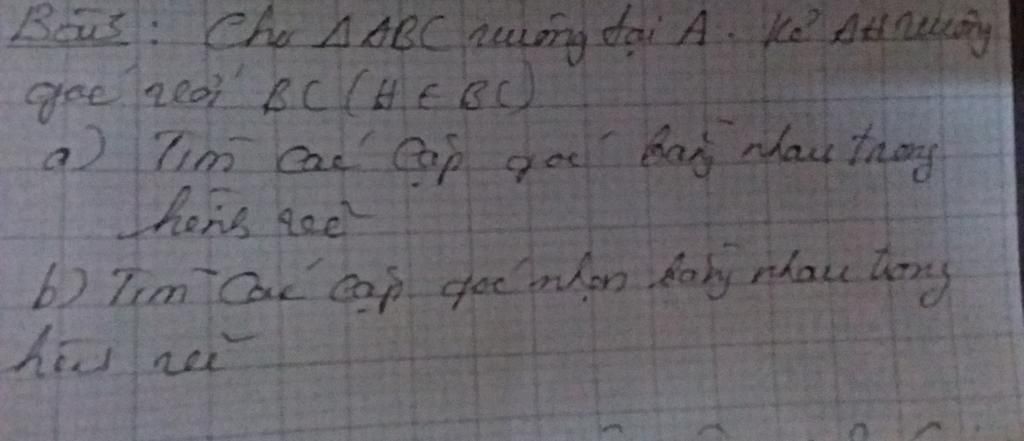 Bài 5: Cho ΔABC vuông tại A. Kẻ AH vuông
góc với BC (H ∈ BC)
a) Tìm các cặp góc bằng nhau trong
hình vẽ
b) Tìm các cặp góc nhọn bằng nhau trong
hình vẽ